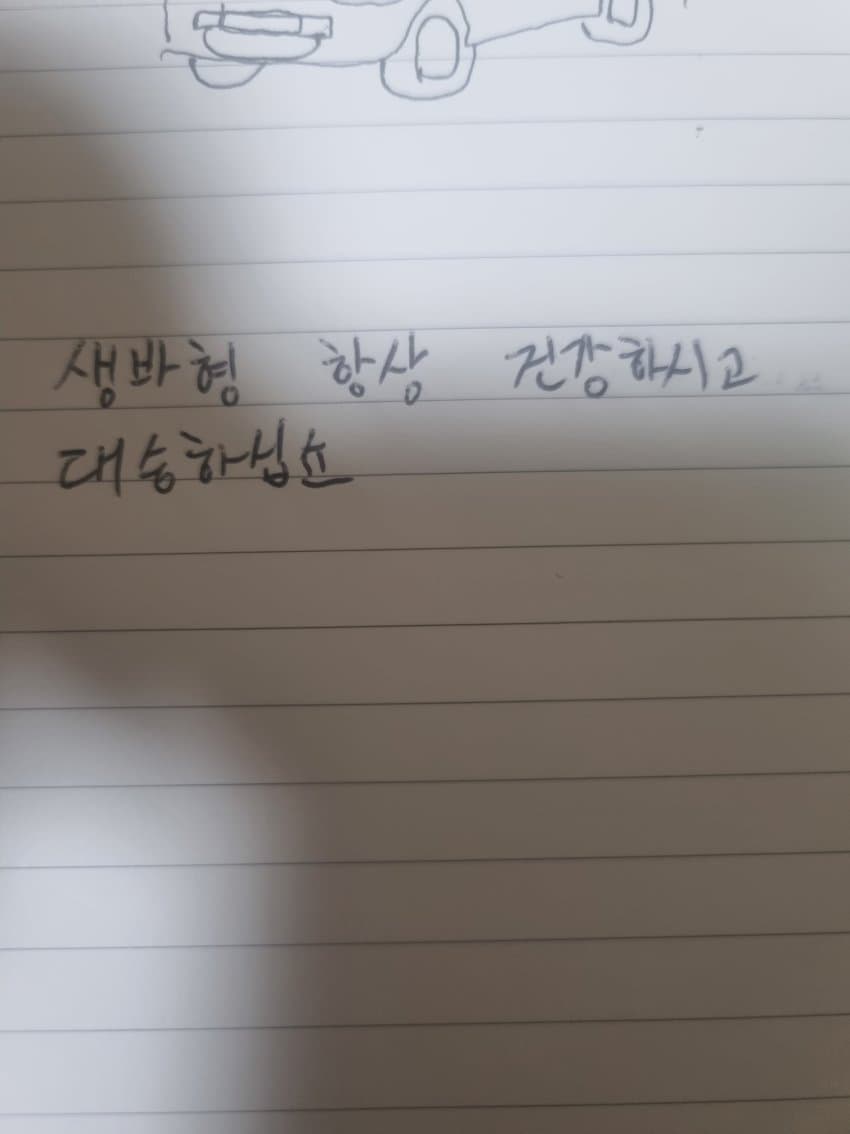 생바형 항상 건강하시고
대승하십쇼